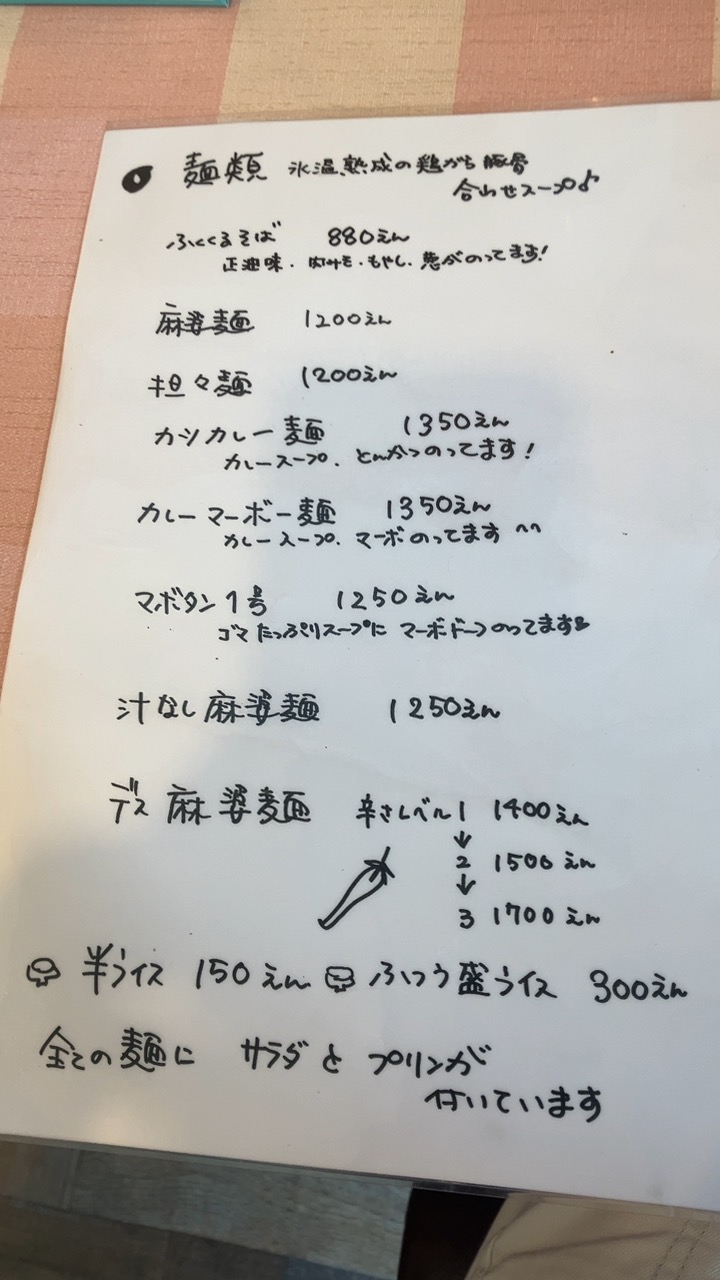 麺類 氷温熟成の鶏がら豚骨
合わせスープ♪
ふくくるそば 880えん
正油味・肉みそ・もやし、葱がのってます!
麻婆麺 1200えん
担々麺 1200えん
カツカレー麺 1350えん
カレースープ、とんかつのってます!
カレーマーボー麺 1350えん
カレースープ、マーボのってます^^
マボタン1号 1250えん
ゴマたっぷりスープにマーボドーフのってます
汁なし麻婆麺 1250えん
デス麻婆麺 辛さレベル1 1400えん
↓
2 1500えん
↓
3 1700えん
半ライス 150えん ふつう盛ライス 300えん
全ての麺に サラダと プリンが
付いています